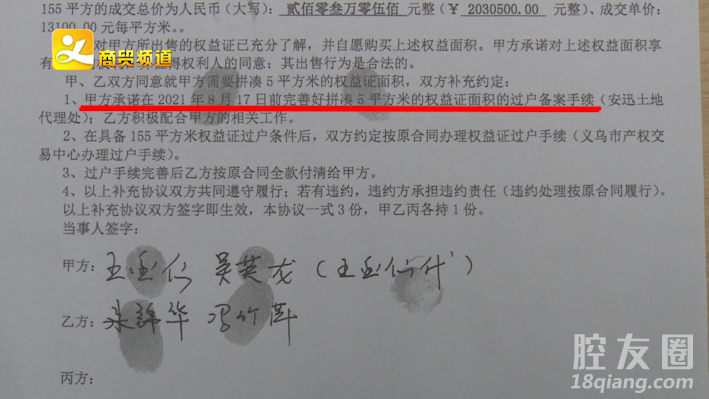 155 平方的成交总价为人民币（大写）：贰佰零叁万零伍佰 元整（￥ 2030500.00 元整）、成交单价：
13100.00 元每平方米。。
商贸频道
对甲方所出售的权益证已充分了解，并自愿购买上述权益面积。甲方承诺对上述权益面积享
权利人的同意；其出售行为是合法的。
甲、乙双方同意就甲方需要拼凑 5 平方米的权益证面积，双方补充约定：
1、甲方承诺在 2021 年 8 月 17 日前完善好拼凑 5 平方米的权益证面积的过户备案手续（安迅土地
代理处）；乙方积极配合甲方的相关工作。
2、在具备 155 平方米权益证过户条件后，双方约定按原合同办理权益证过户手续（义乌市产权交
易中心办理过户手续）。
3、过户手续完善后乙方按原合同全款付清给甲方。
4、以上补充协议双方共同遵守履行；若有违约，违约方承担违约责任（违约处理按原合同履行）。
以上补充协议双方签字即生效，本协议一式 3 份，甲乙丙各持 1 份。
当事人签字：
甲方：
乙方：
丙方：
腔友圈
18qiang.com